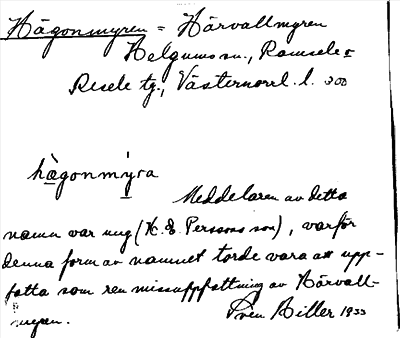 Hågonmyren = Hårvallmyren
Helgums sn., Ramsele o
Resele tg., Västernorrl. l. 300
hågonmyra
Meddelaren av detta
namn var ung (K. E. Perssons son), varför
denna form av namnet torde vara att upp-
fatta som ren missuppfattning av Hårvall-
myren.
Sven Hiller 1933